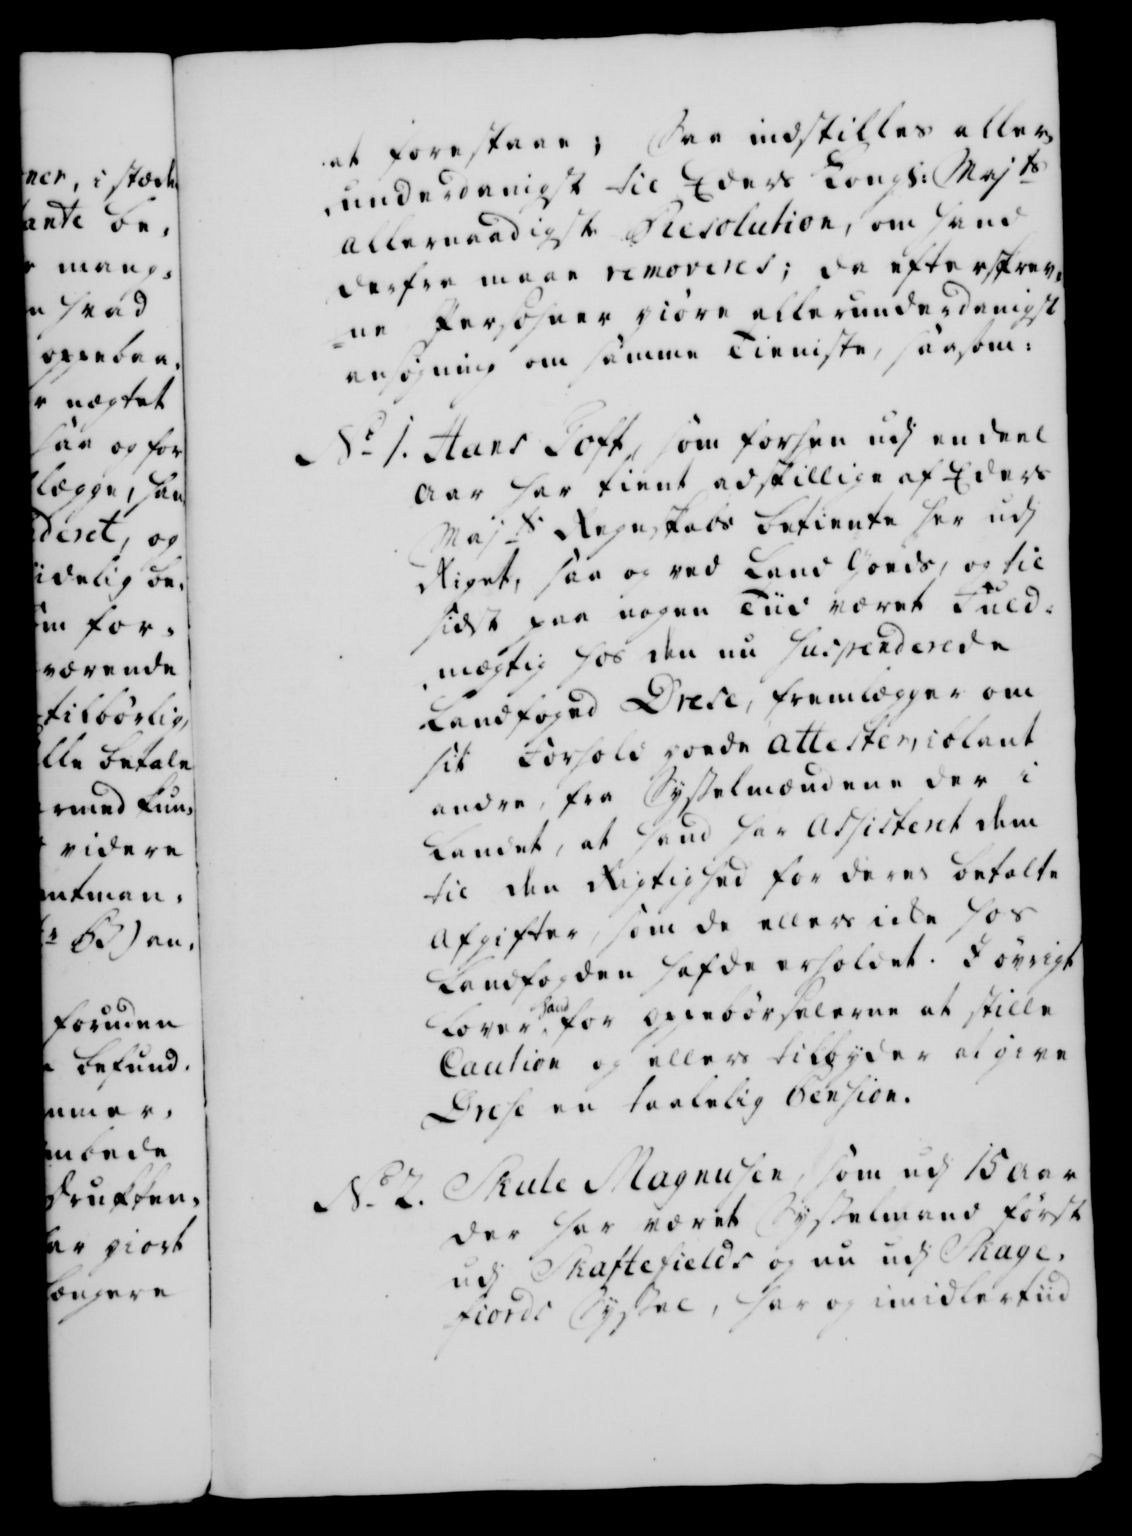 ner, i stæde
tante be-
r mang-
n hvad
oppebaa-
r nægtet
saa og for
lægge, han
deret, og
idelig be-
om for-
værende
tilbørlig,
lle betale
rmed kun-
videre
mtman-
63) an-
foruden
e befund-
mmer-
mbede
druffen-
ar giort
længere
at forestaae; Saa indstilles aller-
underdanigst til Eders Kongl: Majts
allernaadigste Resolution, om hand
derfra maae removeres; da efterskrev-
ne Persohner giøre allerunderdanigst
ansøgning om samme Tieniste, saasom:
No 1. Hans Toft, som forhen udj endeel
Aar har tient adskillige af Eders
Majts Regnskabs betiente her udj
Riget, saa og ved Land Goeds, og til
sidst paa nogen Tiid været Fuld-
mægtig hos den nu suspenderede
Landfoged Drese, fremlægger om
sit Forhold goede attester, iblant
andre, fra Sysselmændene der i
Landet, at hand har assisteret dem
til den Rigtighed for deres betalte
Afgifter, som de ellers icke hos
Landfogden hafde erholdet. I øvrigt
lover hand for oppebørselerne at stille
Caution og ellers tilbyder at give
Drese en taalelig Pension.
No 2. Skule Magnusen, som udj 15 Aar
der har været Sysselmand først
udj Skaftefields og nu udj Skage-
fiords Syssel, har og imidlertiid